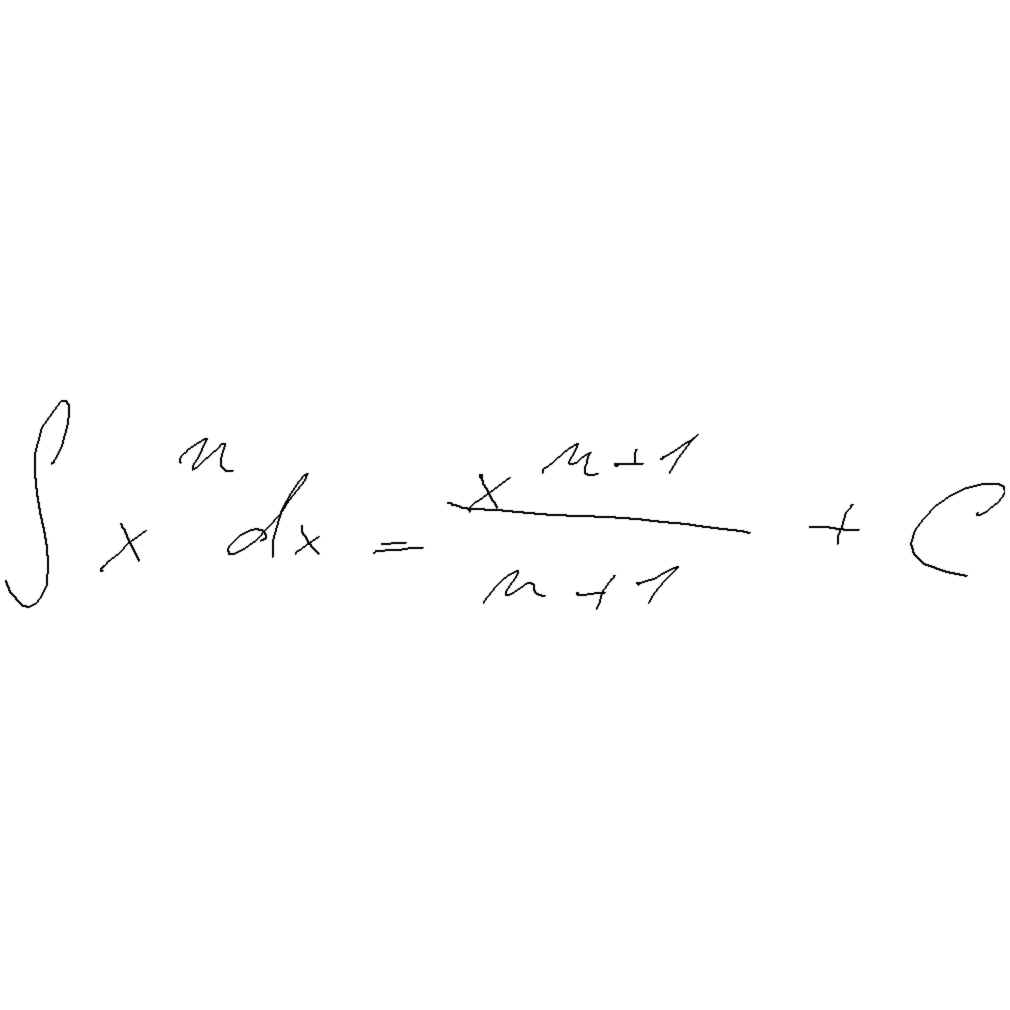 \int x^n dx = \frac{x^{n+1}}{n+1} + C